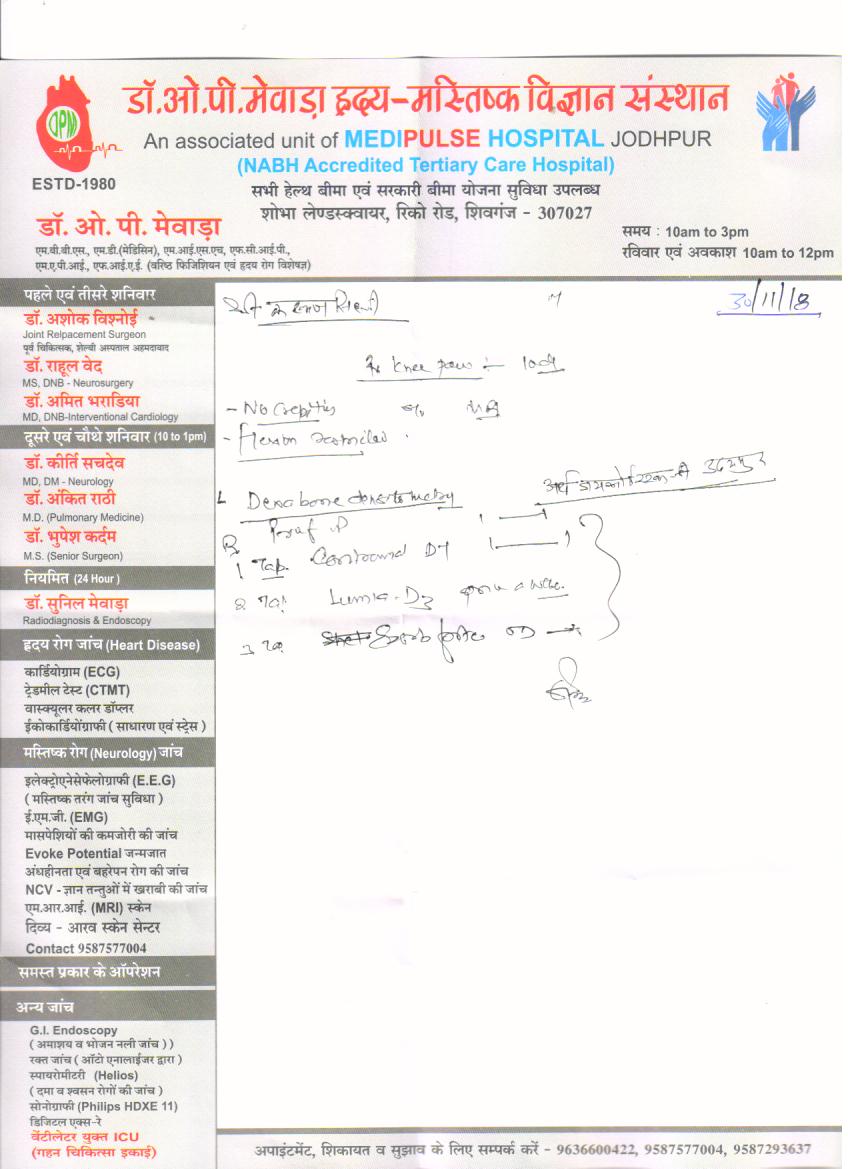 डॉ.ओ.पी.मेवाड़ा हृदय-मस्तिष्क विज्ञान संस्थान
OPM
An associated unit of MEDIPULSE HOSPITAL JODHPUR
(NABH Accredited Tertiary Care Hospital)
ESTD-1980
सभी हेल्थ बीमा एवं सरकारी बीमा योजना सुविधा उपलब्ध
शोभा लेण्डस्क्वायर, रिको रोड, शिवगंज - 307027
डॉ. ओ. पी. मेवाड़ा
समय : 10am to 3pm
एम.बी.बी.एस., एम.डी.(मेडिसिन), एम.आई.एस.एच, एफ.सी.आई.पी.,
रविवार एवं अवकाश 10am to 12pm
एम.ए.पी.आई., एफ.आई.ए.ई. (वरिष्ठ फिजिशियन एवं हृदय रोग विशेषज्ञ)
पहले एवं तीसरे शनिवार
डॉ. अशोक विश्नोई
Joint Relpacement Surgeon
पूर्व चिकित्सक, शेल्वी अस्पताल अहमदाबाद
डॉ. राहूल वेद
MS, DNB - Neurosurgery
डॉ. अमित भराडिया
MD, DNB-Interventional Cardiology
दूसरे एवं चौथे शनिवार (10 to 1pm)
डॉ. कीर्ति सचदेव
MD, DM - Neurology
डॉ. अंकित राठी
M.D. (Pulmonary Medicine)
डॉ. भुपेश कर्दम
M.S. (Senior Surgeon)
नियमित (24 Hour )
डॉ. सुनिल मेवाड़ा
Radiodiagnosis & Endoscopy
हृदय रोग जांच (Heart Disease)
कार्डियोग्राम (ECG)
ट्रेडमील टेस्ट (CTMT)
वास्क्यूलर कलर डॉप्लर
ईकोकार्डियोंग्राफी ( साधारण एवं स्ट्रेस )
मस्तिष्क रोग (Neurology) जांच
इलेक्ट्रोएनेसेफेलोग्राफी (E.E.G)
( मस्तिष्क तरंग जांच सुविधा )
ई.एम.जी. (EMG)
मासपेशियों की कमजोरी की जांच
Evoke Potential जन्मजात
अंधहीनता एवं बहरेपन रोग की जांच
NCV - ज्ञान तन्तुओं में खराबी की जांच
एम.आर.आई. (MRI) स्केन
दिव्य - आरव स्केन सेन्टर
Contact 9587577004
समस्त प्रकार के ऑपरेशन
अन्य जांच
G.I. Endoscopy
( अमाशय व भोजन नली जांच ))
रक्त जांच ( ऑटो एनालाईजर द्वारा )
स्पायरोमीटरी (Helios)
( दमा व श्वसन रोगों की जांच )
सोनोग्राफी (Philips HDXE 11)
डिजिटल एक्स-रे
वेंटीलेटर युक्त ICU
(गहन चिकित्सा इकाई)
30/11/18
Knee
- No Crepitus
- Flexion
1 Tab.
2 Tab
3 Tab OD
अपाइंटमेंट, शिकायत व सुझाव के लिए सम्पर्क करें - 9636600422, 9587577004, 9587293637